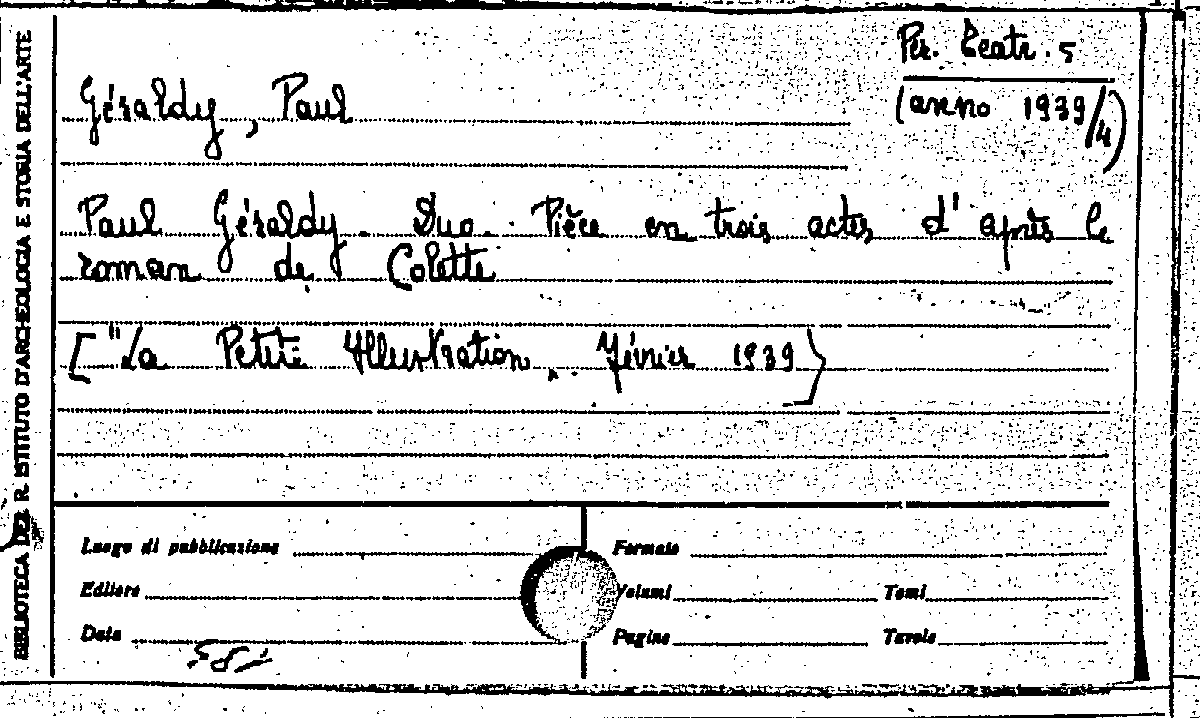 BIBLIOTECA DEL R. ISTITUTO D'ARCHEOLOGIA E STORIA DELL'ARTE
Per. Teatr. 5
(anno 1939/4)
Géraldy, Paul
Paul Géraldy. Duo. Pièce en trois actes d'après le
roman de Colette
["La Petite Illustration„. Février 1939]
Luogo di pubblicazione
Formato
Editore
Volumi
Tomi
Data
Pagine
Tavole